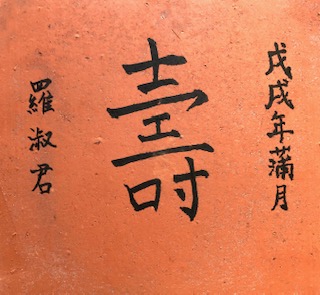 戊戌年蒲月
壽
羅淑君